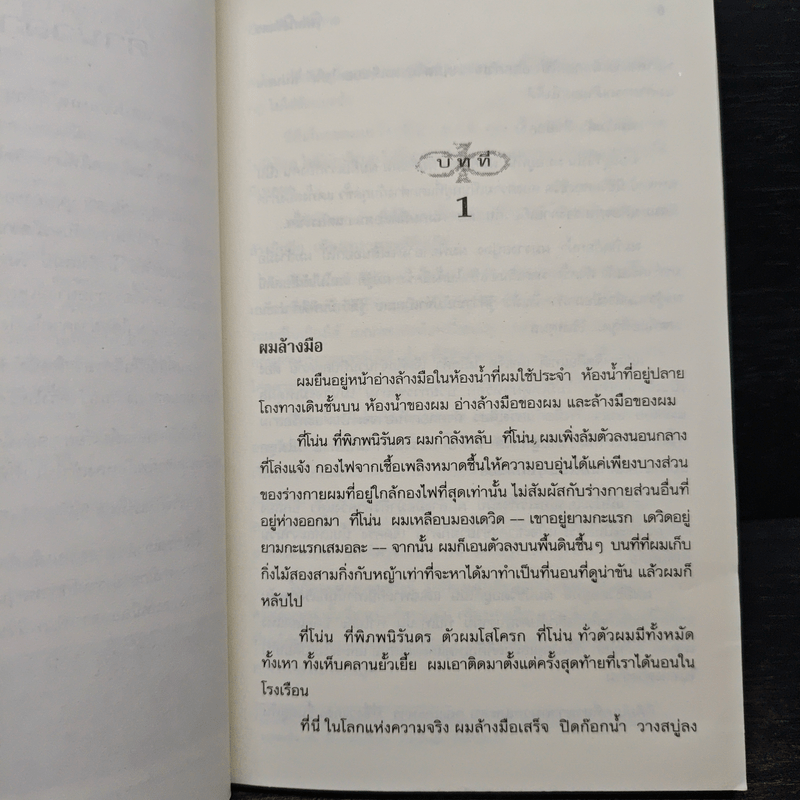 บทที่
1
ผมล้างมือ
ผมยืนอยู่หน้าอ่างล้างมือในห้องน้ำที่ผมใช้ประจำ ห้องน้ำที่อยู่ปลาย
โถงทางเดินชั้นบน ห้องน้ำของผม อ่างล้างมือของผม และล้างมือของผม
ที่โน่น ที่พิภพนิรันดร ผมกำลังหลับ ที่โน่น ผมเพิ่งล้มตัวลงนอนกลาง
ที่โล่งแจ้ง กองไฟจากเชื้อเพลิงหมาดชื้นให้ความอบอุ่นได้แค่เพียงบางส่วน
ของร่างกายผมที่อยู่ใกล้กองไฟที่สุดเท่านั้น ไม่สัมผัสกับร่างกายส่วนอื่นที่
อยู่ห่างออกมา ที่โน่น ผมเหลือบมองเดวิด -- เขาอยู่ยามกะแรก เดวิดอยู่
ยามกะแรกเสมอละ -- จากนั้น ผมก็เอนตัวลงบนพื้นดินชื้นๆ บนที่ที่ผมเก็บ
กิ่งไม้สองสามกิ่งกับหญ้าเท่าที่จะหาได้มาทำเป็นที่นอนที่ดูน่าขัน แล้วผมก็
หลับไป
ที่โน่น ที่พิภพนิรันดร ตัวผมโสโครก ที่โน่น ทั่วตัวผมมีทั้งหมัด
ทั้งเหา ทั้งเห็บคลานยั้วเยี้ย ผมเอาติดมาตั้งแต่ครั้งสุดท้ายที่เราได้นอนใน
โรงเรือน
ที่นี่ ในโลกแห่งความจริง ผมล้างมือเสร็จ ปิดก๊อกน้ำ วางสบู่ลง